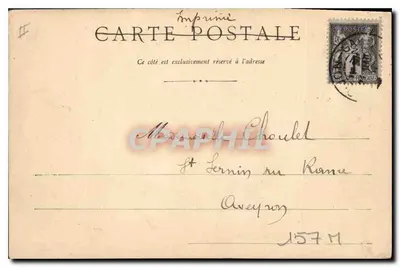 II
Imprimé
CARTE POSTALE
Ce côté est exclusivement réservé à l'adresse
Choulet
CPAPHIL
St Sernin su Rance
Aveyron
157M